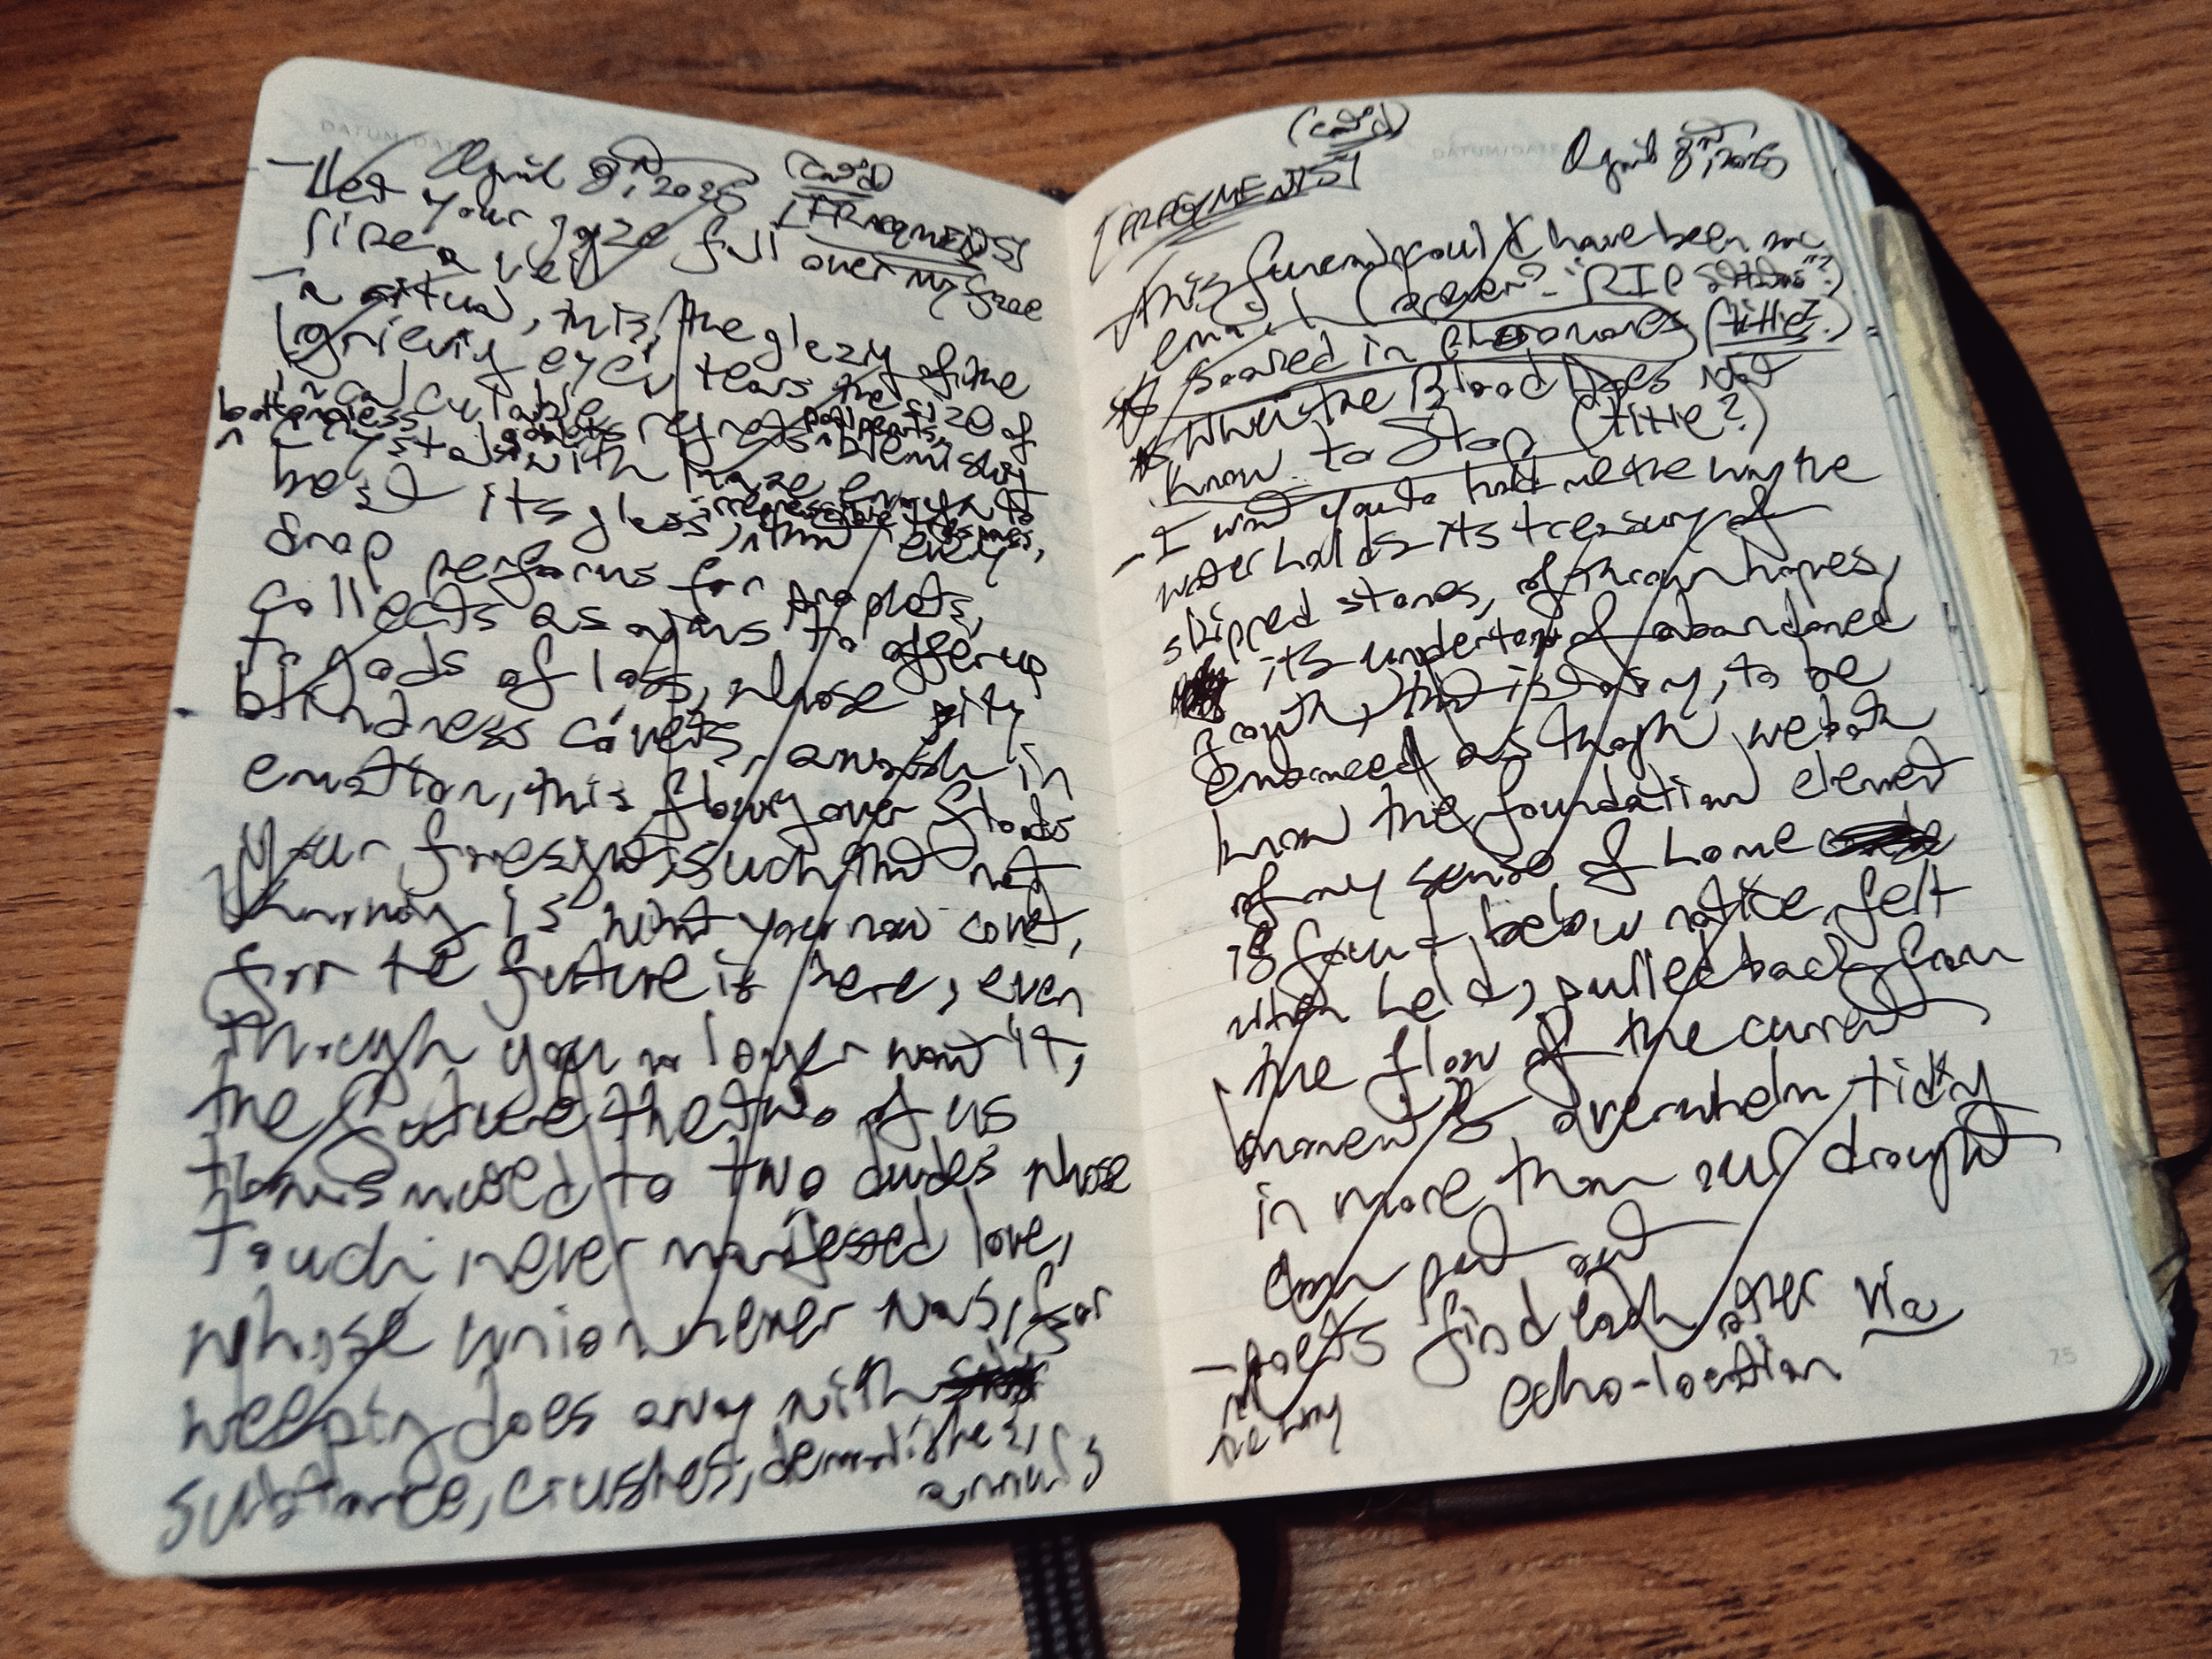 April 8th, 2025 (Cont'd)
[FRAGMENTS]
- Let your gaze fall over my face
like a veil
- A ritual, this, the glazing of the
grieving eye, tears the size of
incalculable regrets
bottomless goblets
crystals with
bend its glass, every
drop performs for
collects as to offer up
to gods of loss, whose pity
blindness covets, awash in
emotion, this flowing over floods
your foresight such that not
is what you now covet,
for the future is here, even
though you no longer want it,
the future the two of us
to two dudes whose
touch never manifested love,
whose union never was, for
weeping does away with
substance, crushes, demolishes,
annuls
(Cont'd)
[FRAGMENTS] April 8th, 2025
This funeral could have been an
email ( "RIP ?)
* Soaked in Pheromones (title?)
* When the Blood Does Not
Know to Stop (title?)
- I want you to hold me the way the
water holds its treasury of
skipped stones, of thrown hopes,
its undertow of abandoned
to be
as though we both
know the foundation element
of my sense of home
is found below notice, felt
when held, pulled back from
the flow of the current
moment's overwhelm
in more than our drought
can put out
- poets find each other via
echo-location